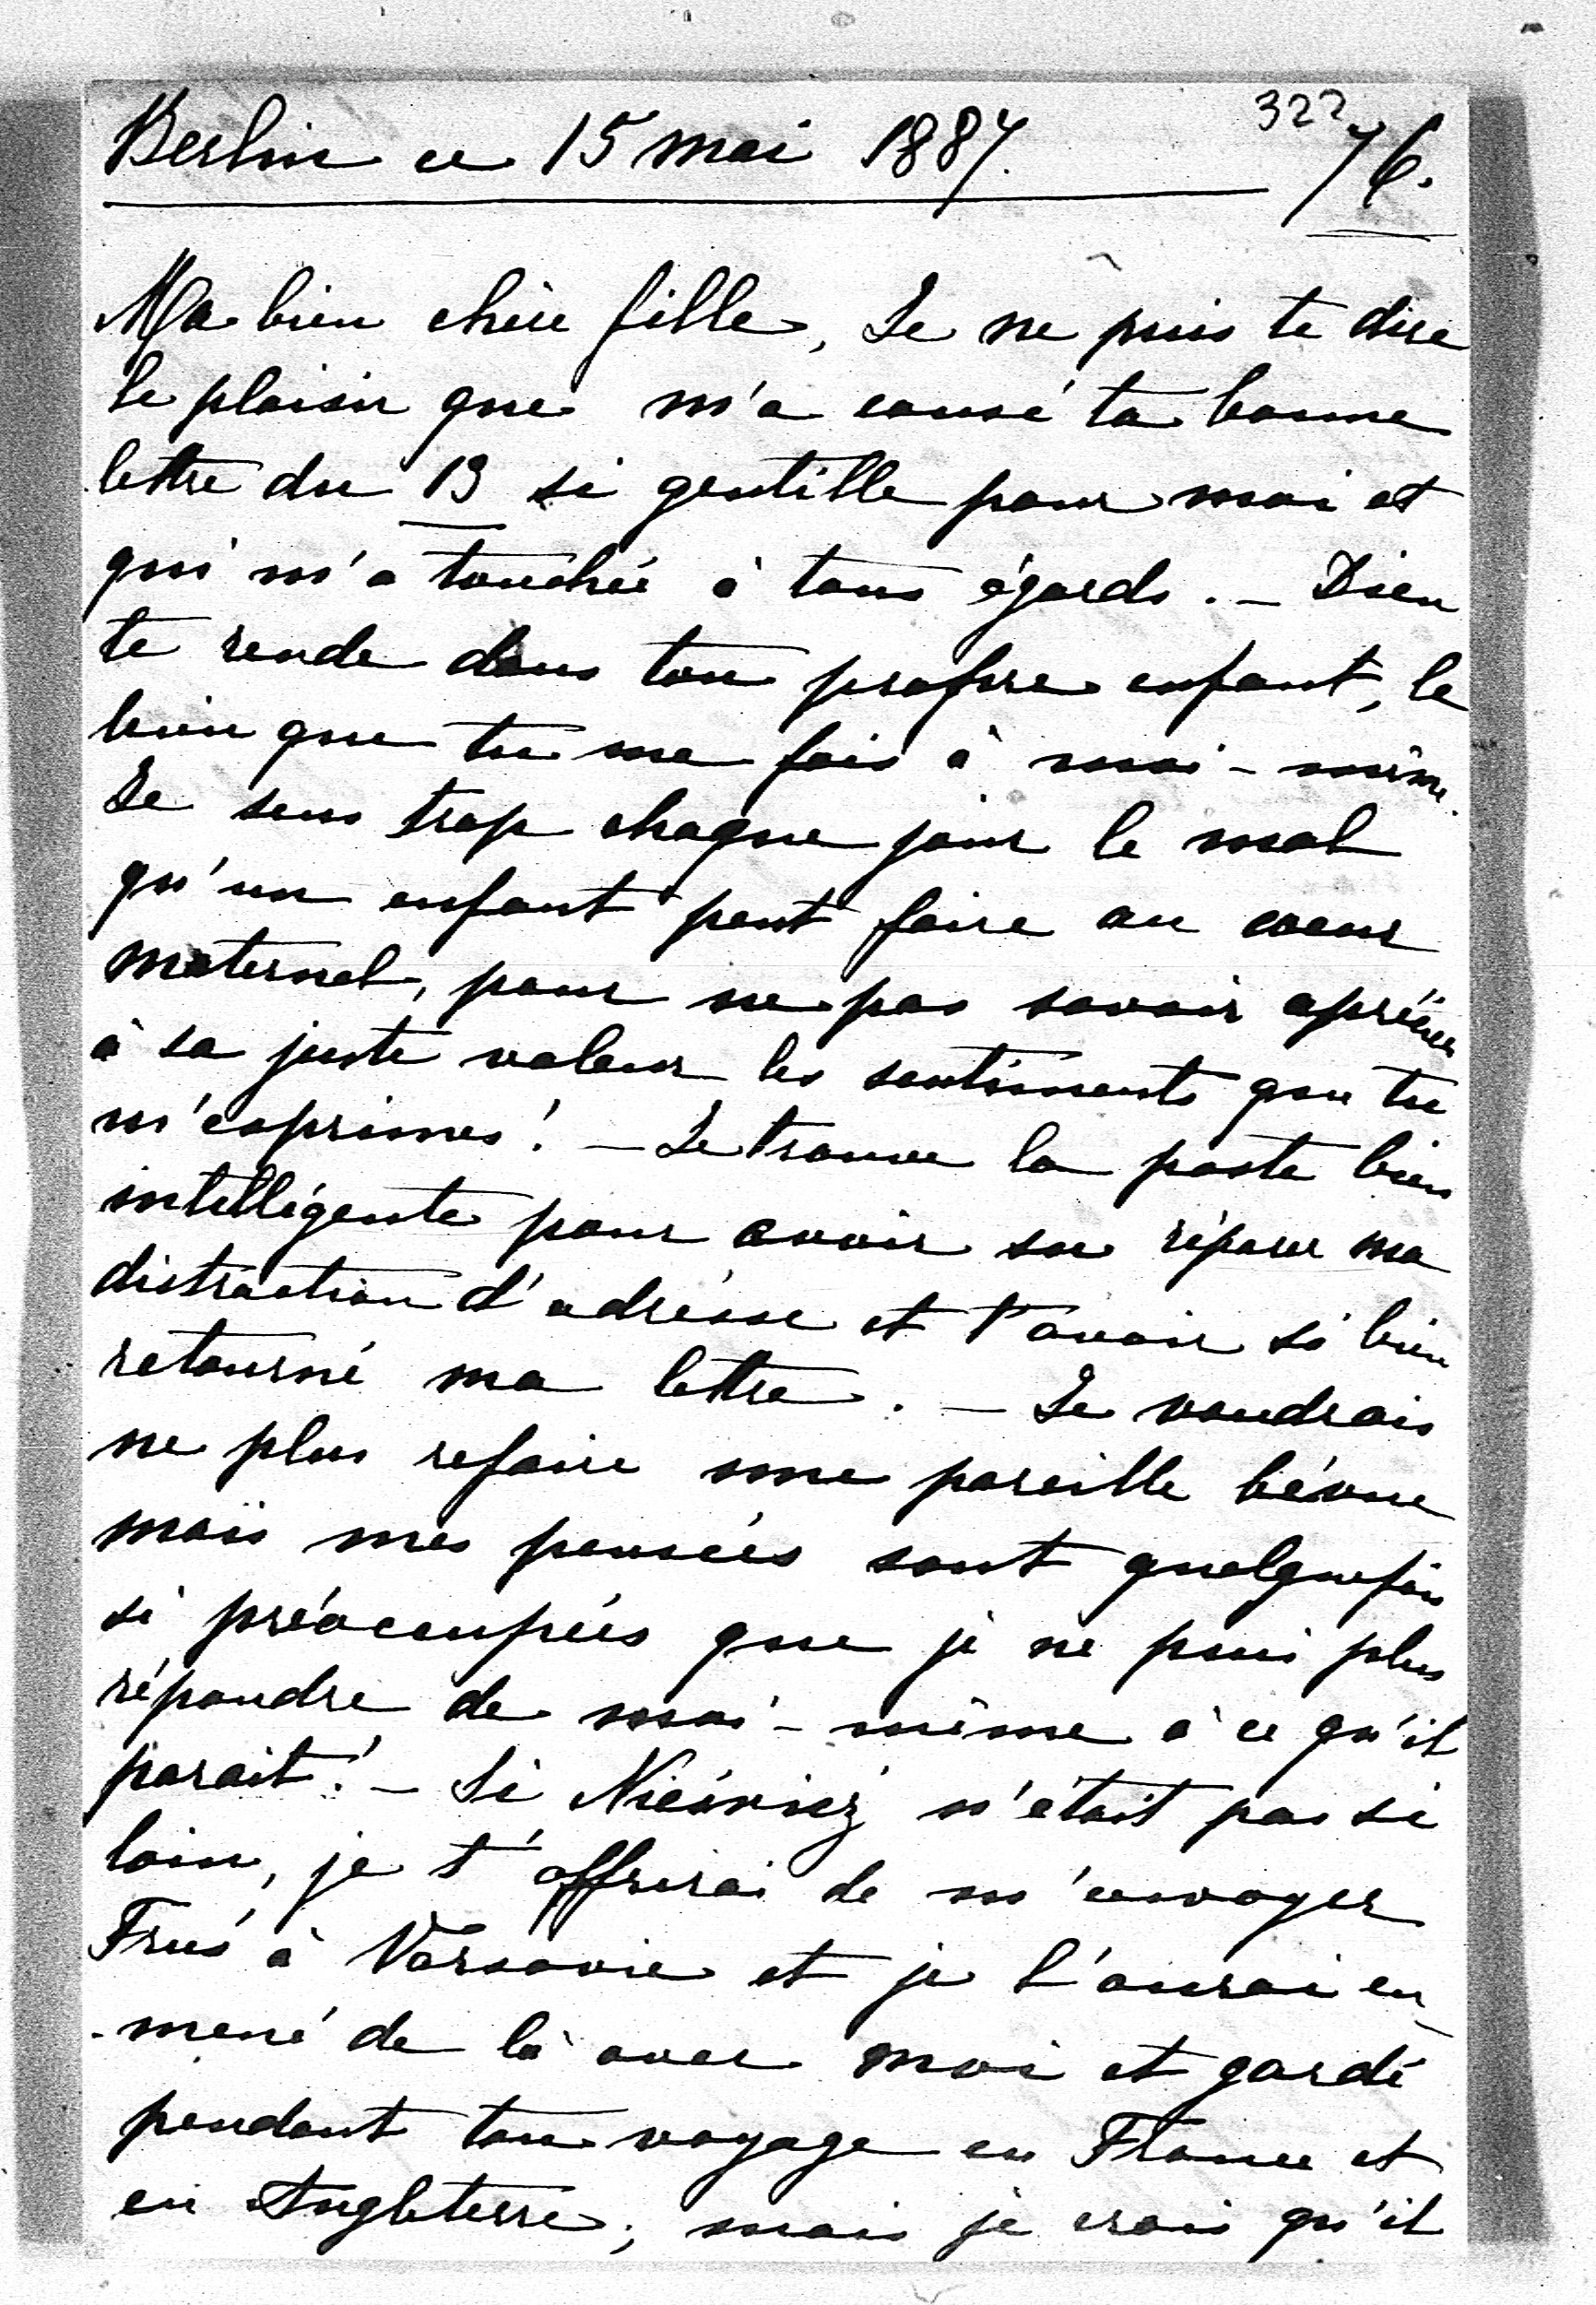 322
Berlin ce 15 mai 1887. 76.
Ma bien chère fille, Je ne puis te dire
le plaisir que m'a causé ta bonne
lettre du 13 si gentille pour moi et
qui m'a touchée à tous égards. – Dieu
te rende dans ton propre enfant, le
bien que tu me fais à moi-même.
Je sens trop chaque jour le mal
qu'un enfant peut faire au coeur
maternel, pour ne pas savoir aprécier
à sa juste valeur les sentiments que tu
m'exprimes! – Je trouve la poste bien
intelligente pour avoir su réparer ma
distraction d'adresse et t'avoir si bien
retourné ma lettre. – Je voudrais
ne plus refaire une pareille bévue
mais mes pensées sont quelquefois
si préocupées que je ne puis plus
répondre de moi-même à ce qu'il
parait! – Si Niéśwież n'était pas si
loin, je t'offrirai de m'envoyer
à Varsovie et je l'aurai em
-mené de là avec moi et gardé
pendant ton voyage en France et
en Angleterre; mais je crois qu'il